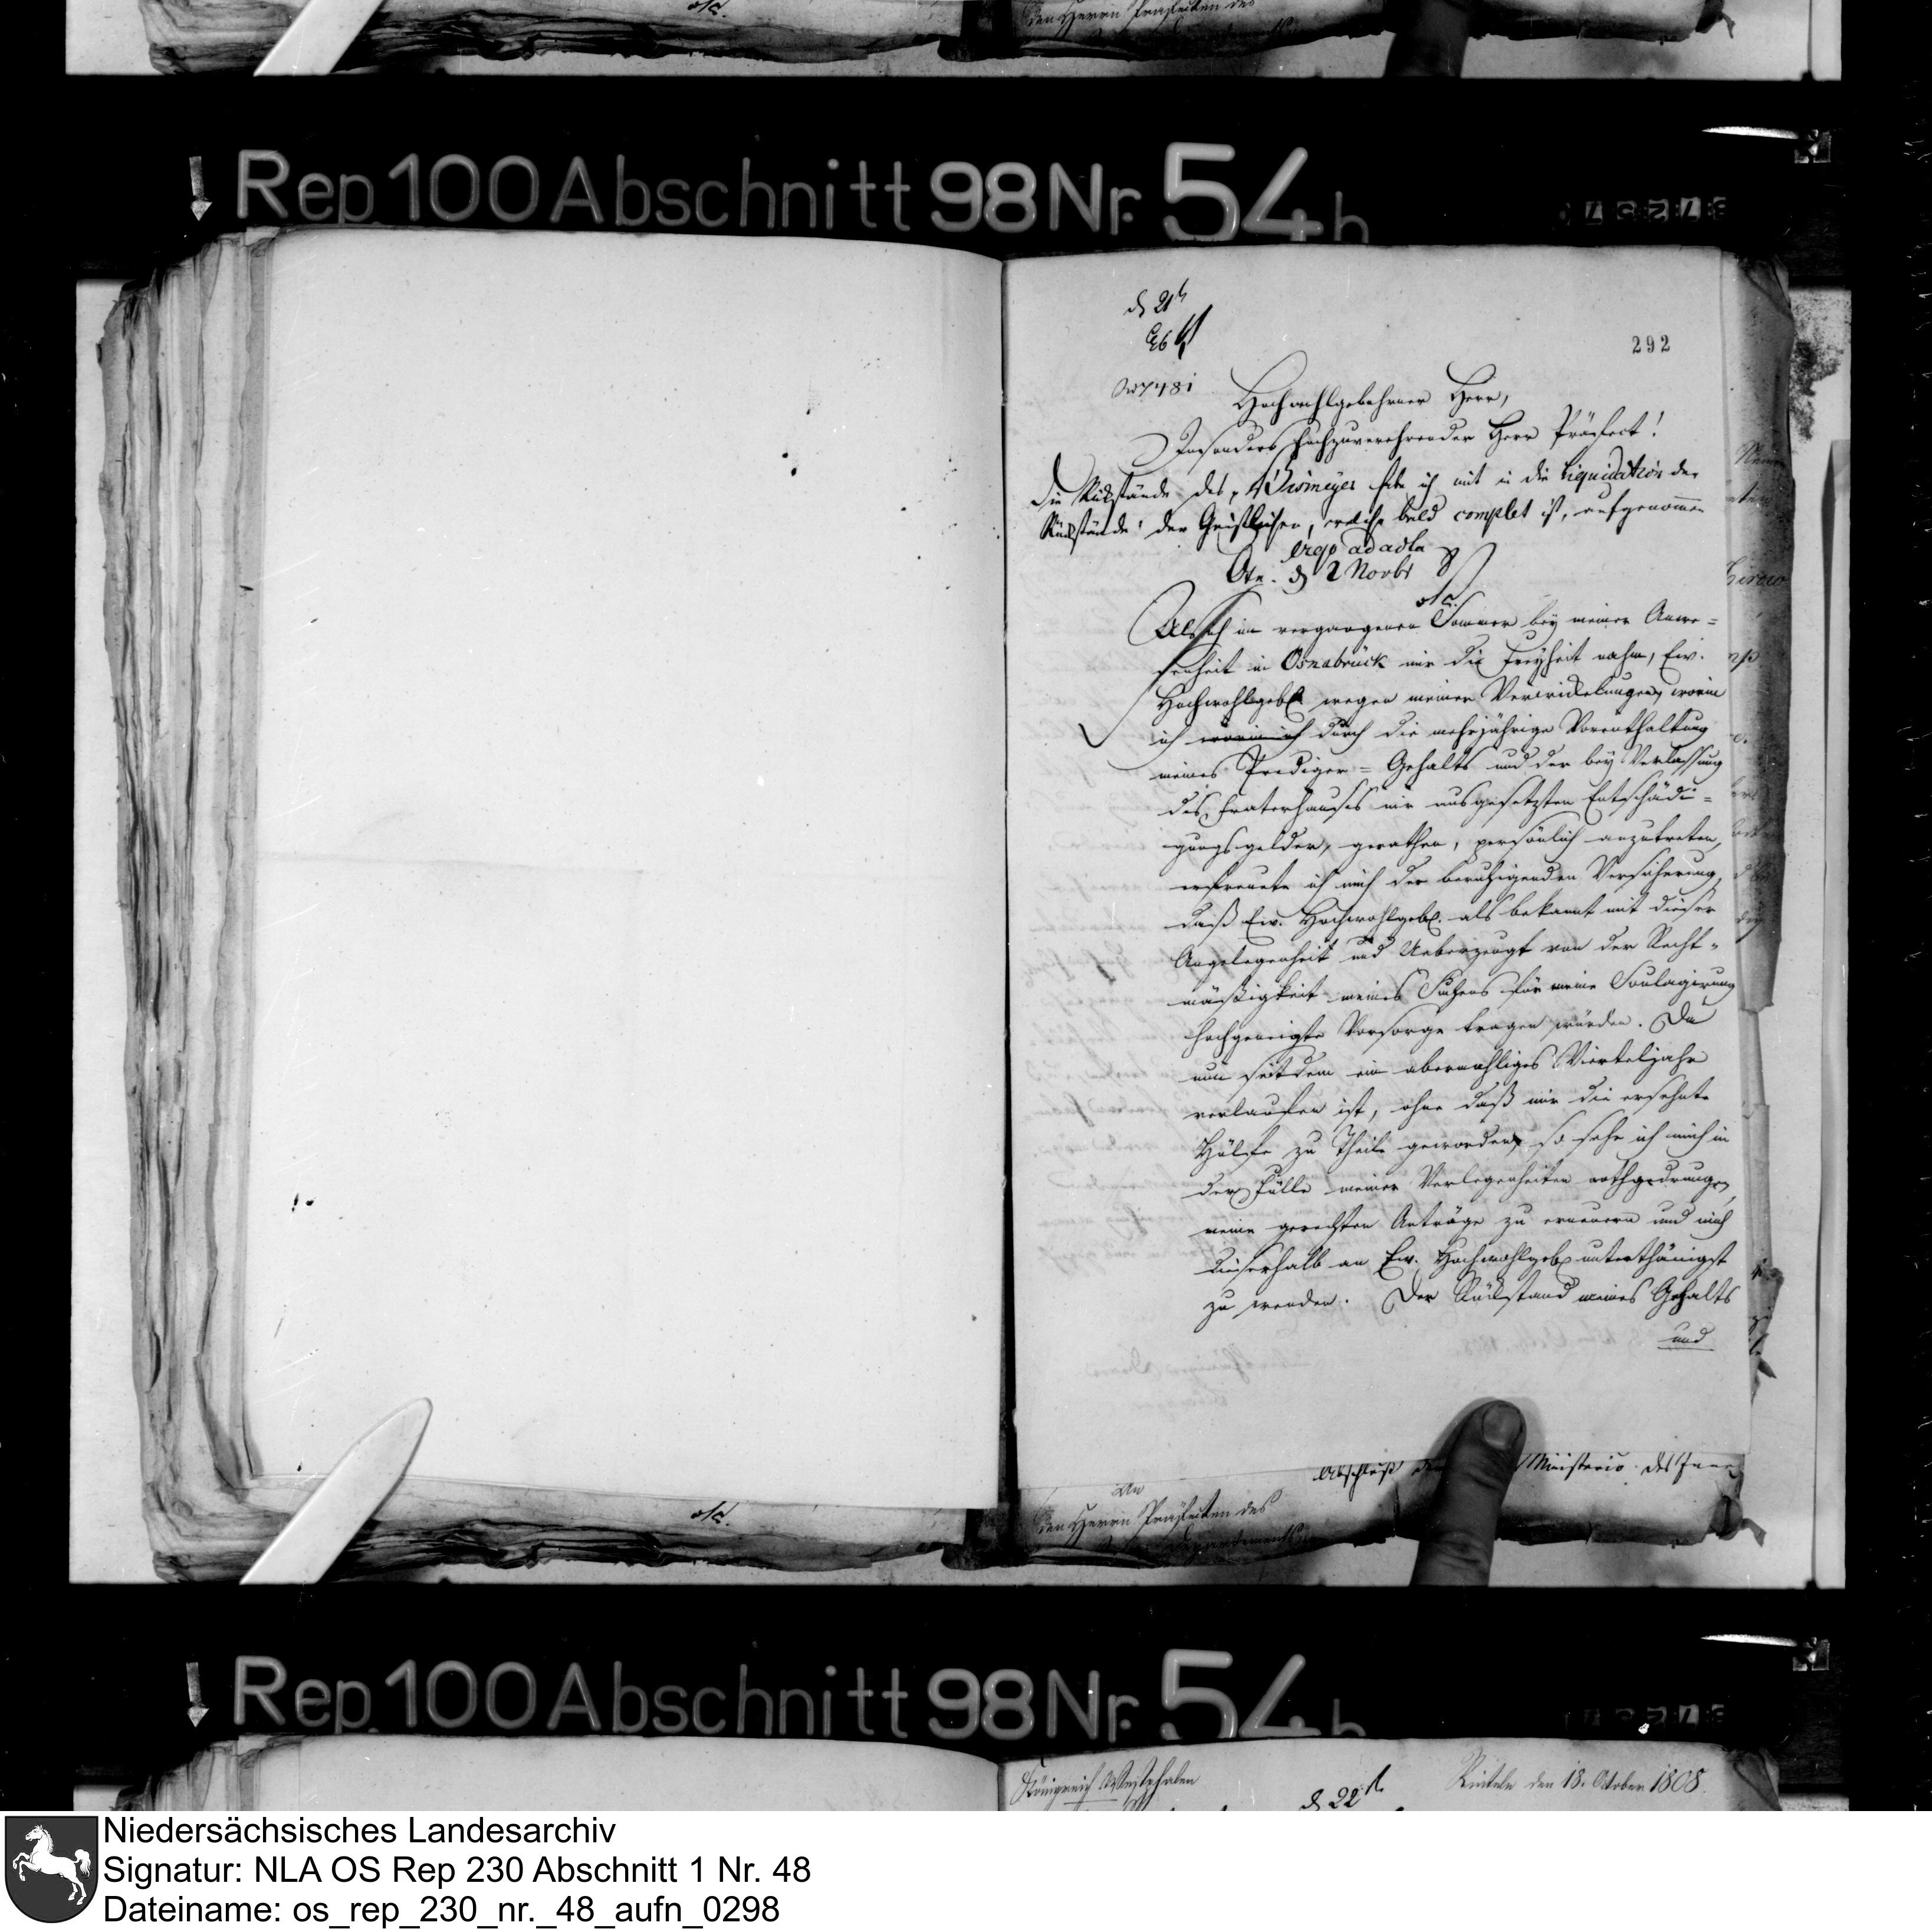 den Herrn Präfecten des
Rep 100 Abschnitt 98 Nr. 54 h
d 21t
292
Hochwohlgebohrner Herr,
Insonders hochzuverehrender Herr Präfect!
Die Rückstände des habe ich mit in die Liquidation der
Rückstände der Geistlichen, welche bald complet ist, aufgenommen
ergo ad acta
d 2 Novbr
Als ich im vergangenen Sommer bey meiner Anwe=
senheit in Osnabrück mir die Freyheit nahm, Ew.
Hochwohlgeb. wegen meiner Verwickelungen, worin
ich worin ich durch die mehrjährige Vorenthaltung
meines Prediger=Gehalts und der bey Verlassung
des Fraterhauses mir ausgesetzten Entschädi=
gungsgelder, gerathen, persönlich anzutreten,
erfreuete ich mich der beruhigenden Versicherung,
daß Ew. Hochwohlgeb. als bekannt mit dieser
Angelegenheit und Ueberzeugt von der Recht=
mäßigkeit meines Suchens für meine Soulagirung
hochgeneigte Vorsorge tragen würden. Da
nun seitdem ein abermahliges Vierteljahr
verlaufen ist, ohne daß mir die ersehnte
Hülfe zu Theil geworden, so sehe ich mich in
der Fülle meiner Verlegenheiten nothgedrungen,
meine gerechten Anträge zu erneuern und mich
dieserhalb an Ew. Hochwohlgeb. unterthänigst
zu wenden. Der Rückstand meines Gehalts
und
Abschluß Ministerio des Inne
An
den Herrn Präfecten des
Departements
Rep. 100 Abschnitt 98 Nr. 54 h
Königreich Westphalen
Rinteln den 18. October 1808.
d 22t
Niedersächsisches Landesarchiv
Signatur: NLA OS Rep 230 Abschnitt 1 Nr. 48
Dateiname: os_rep_230_nr._48_aufn_0298